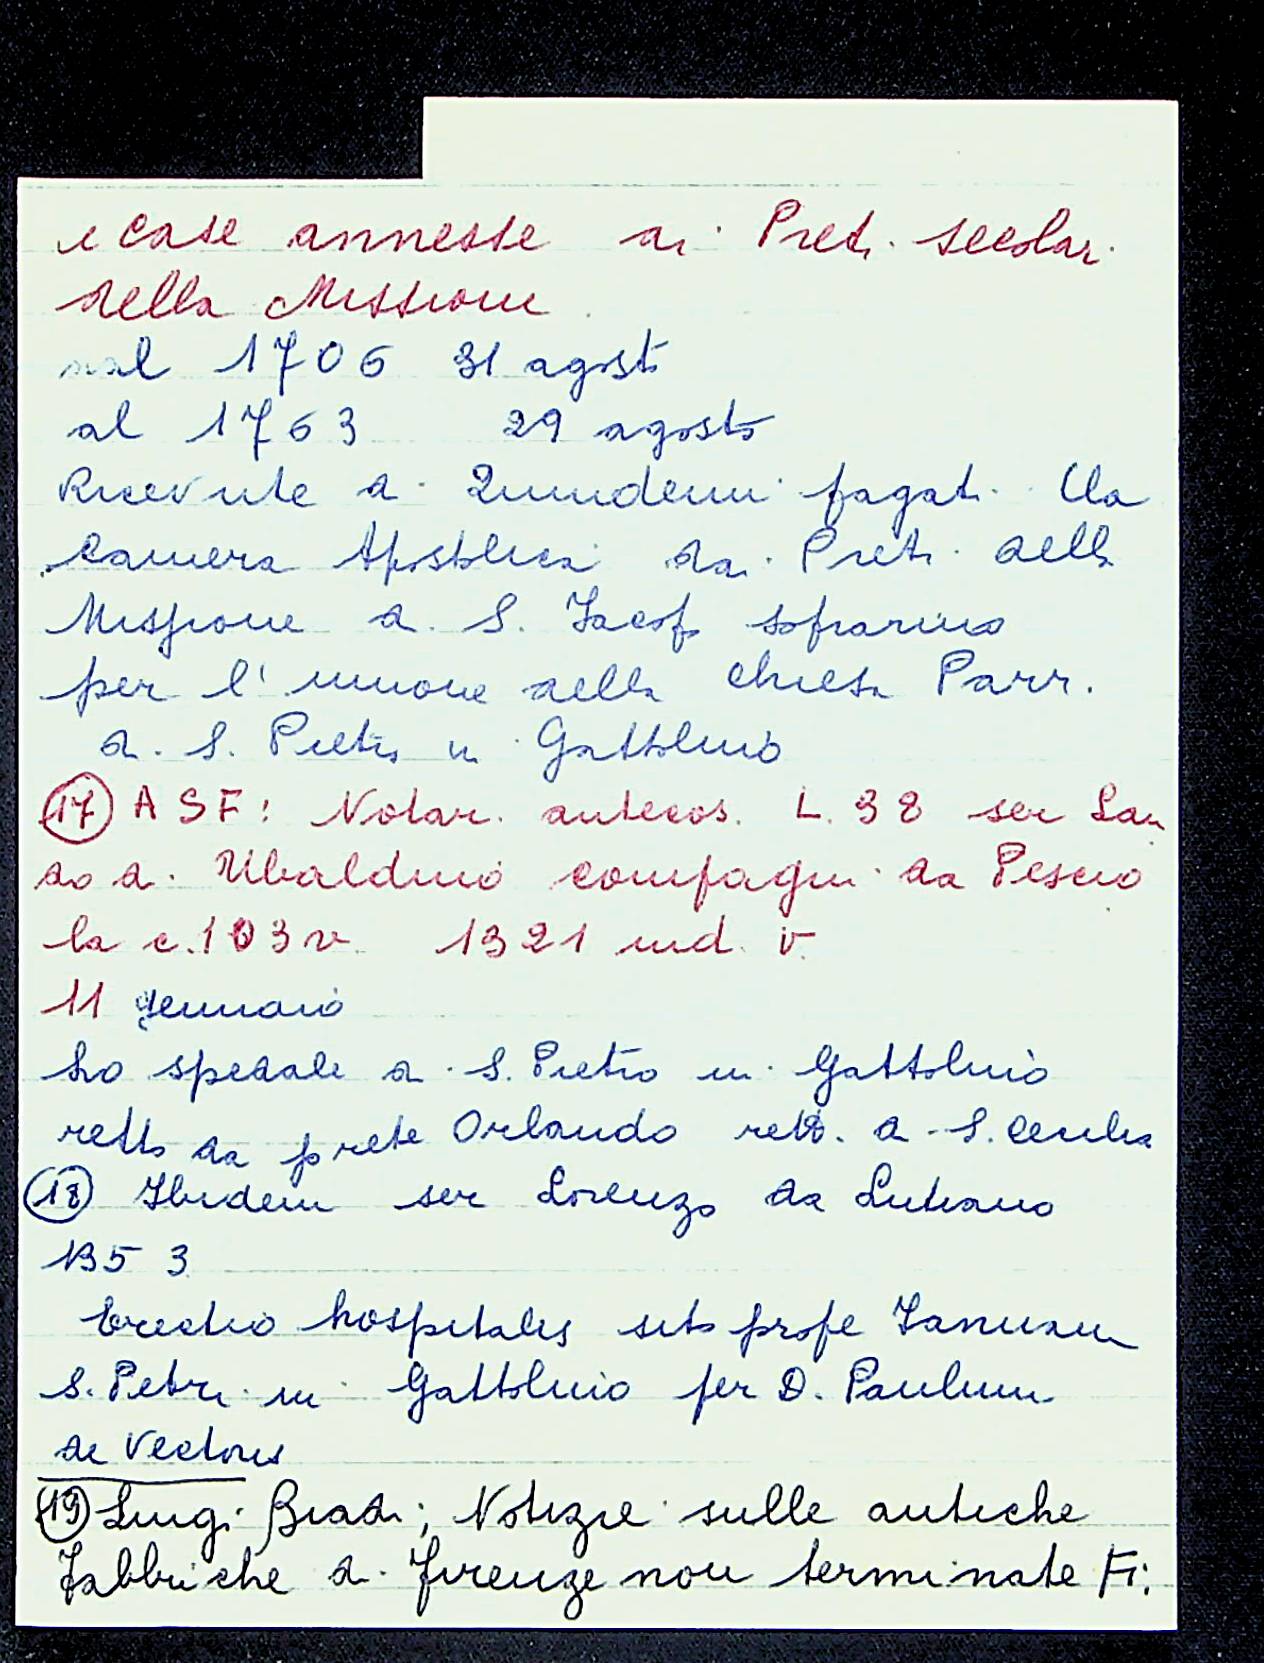 e case annesse ai Preti secolari
della Missione
dal 1706 31 agosto
al 1763 29 agosto
Ricevute di Quindenni pagati alla
Camera Apostolica dai Preti della
Missione di S. Jacopo soprarno
per l'unione della chiesa Parr.
di S. Pietro in Gattolino
(17) ASF: Notar. antecos. L. 38 ser Lan
do di Ubaldino compagni da Pescio
la c. 103v 1321 ind. V
11 gennaio
ho spedale di S. Pietro in Gattolino
retto da prete Orlando rett. di S. Cecilia
(18) Ibidem ser Lorenzo da Lutiano
1353
Erectio hospitalis sito prope Januam
S. Petri in Gattolino per D. Paulum
de Vectoris
(19) Luigi Biadi; Notizie sulle antiche
fabbriche di Firenze non terminate Fi: